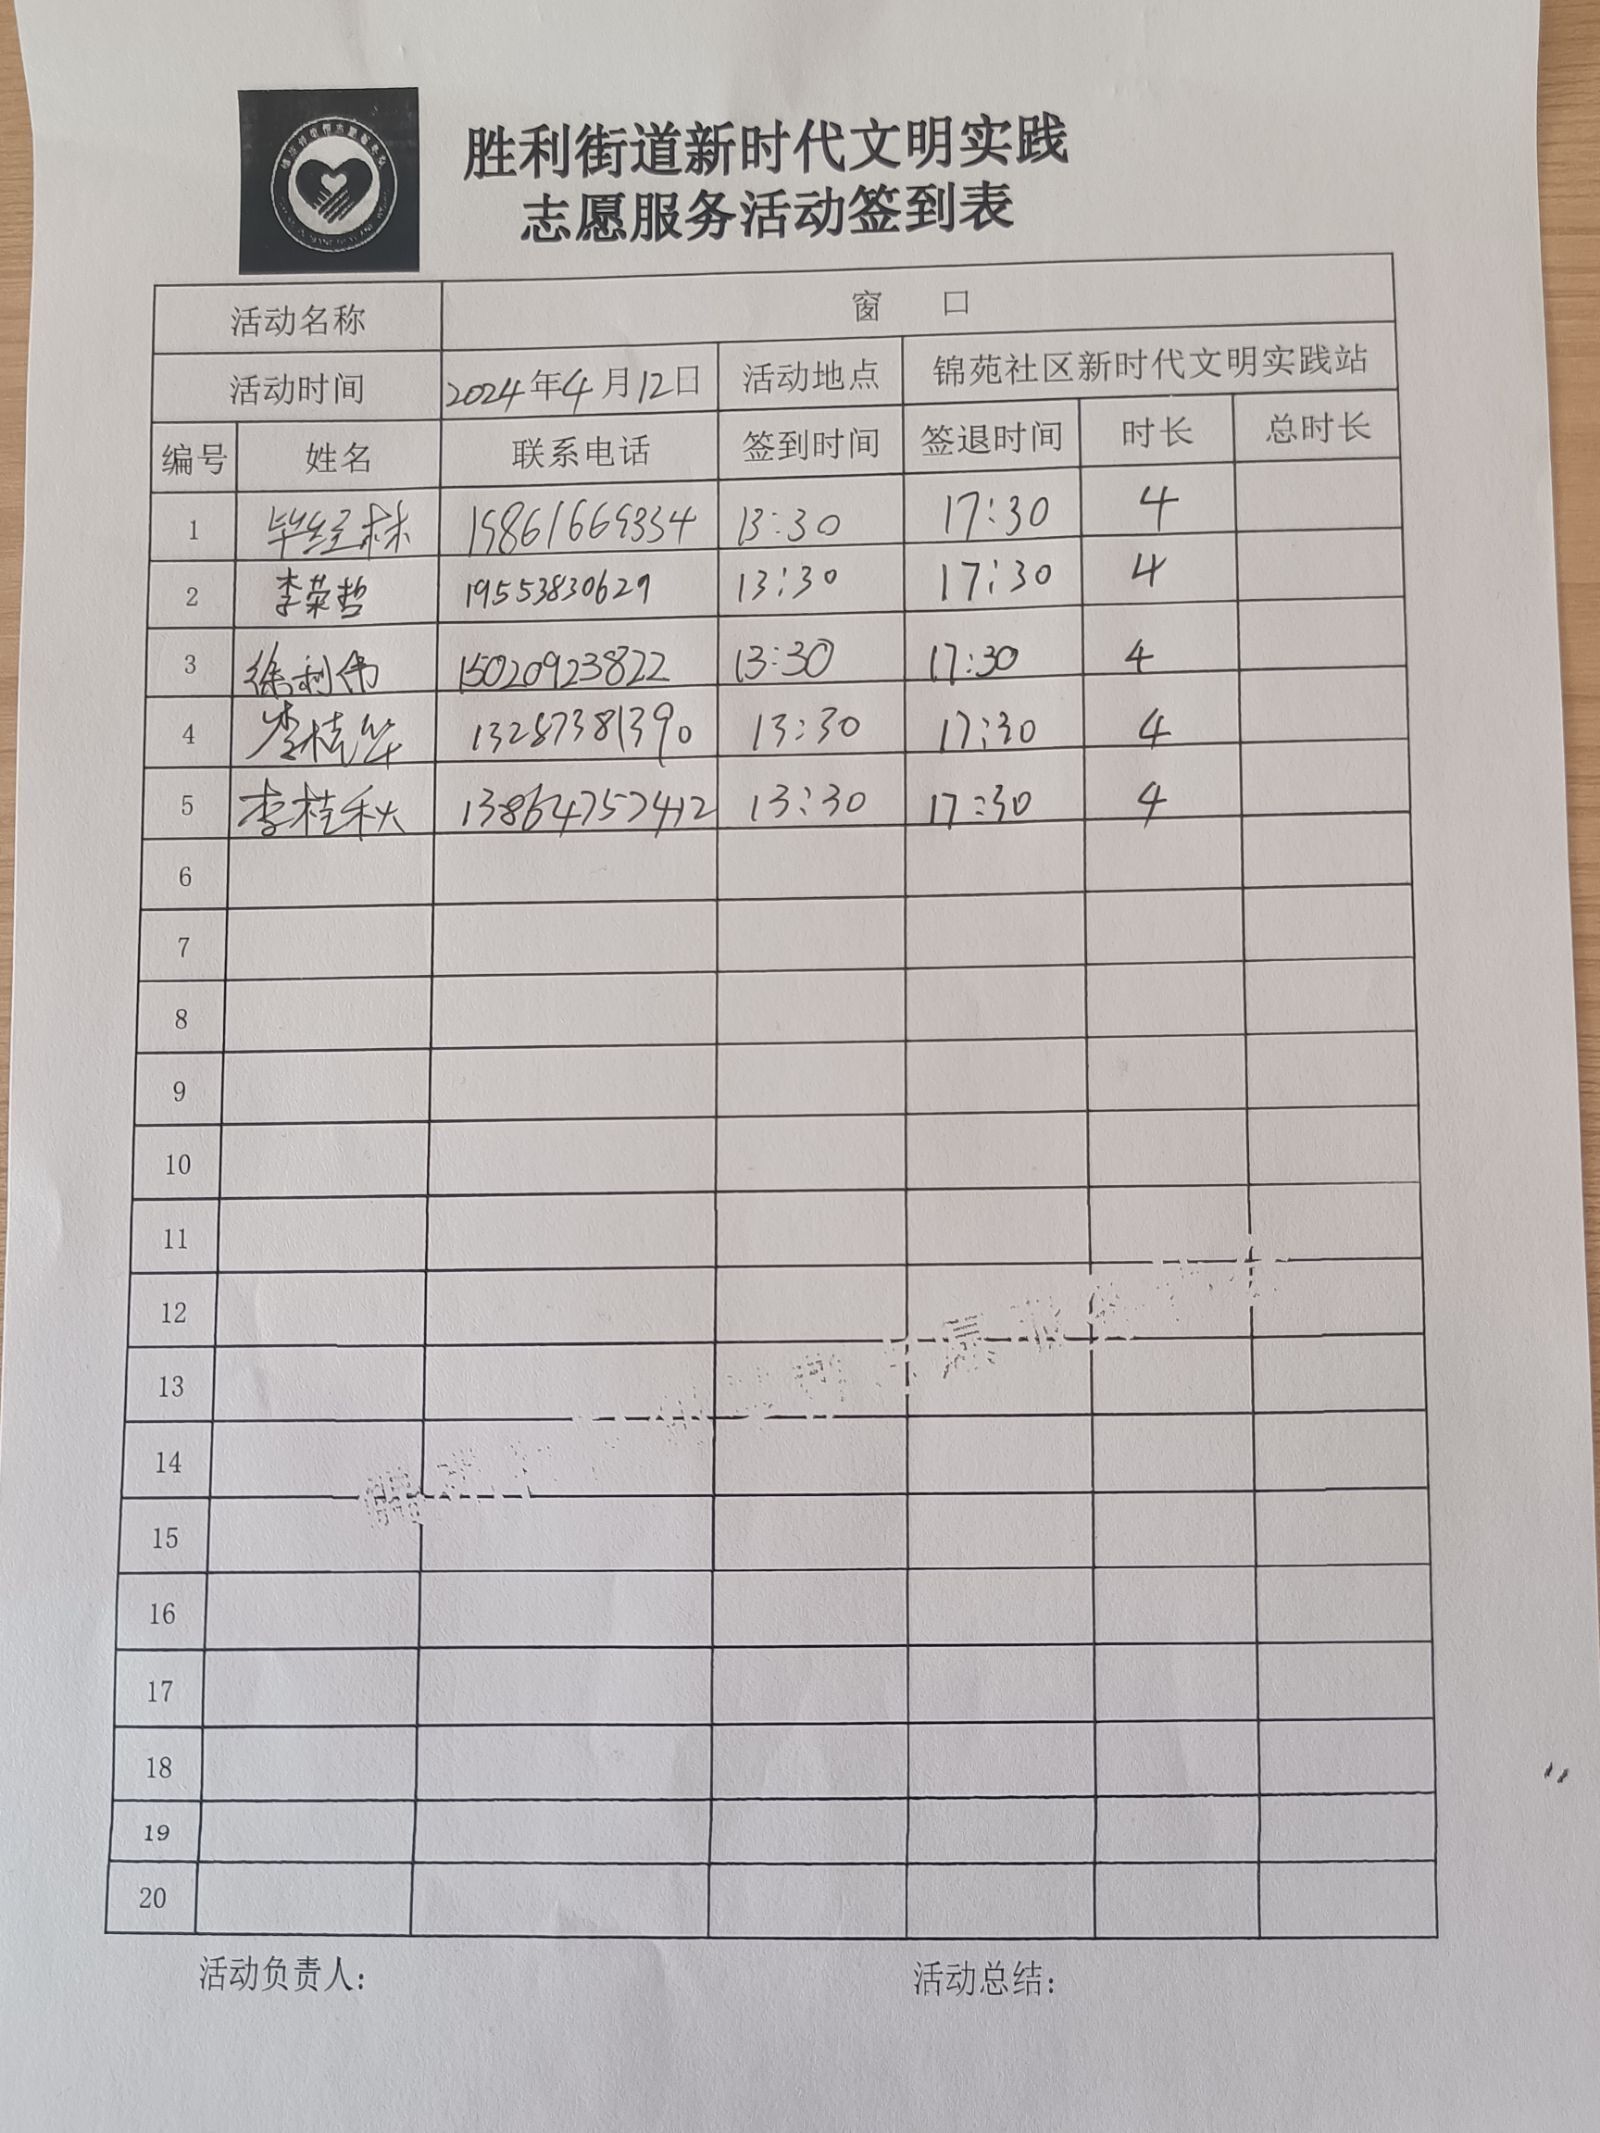 胜利街道新时代文明实践
志愿服务活动签到表
活动名称 窗 口
活动时间 2024年4月12日 活动地点 锦苑社区新时代文明实践站
编号 姓名 联系电话 签到时间 签退时间 时长 总时长
1 毕经林 19861669334 13:30 17:30 4
2 李荣哲 19553830629 13:30 17:30 4
3 徐利伟 15020923822 13:30 17:30 4
4 李桂华 13287381390 13:30 17:30 4
5 李桂秋 13864757412 13:30 17:30 4
6
7
8
9
10
11
12
13
14
15
16
17
18
19
20
活动负责人： 活动总结：